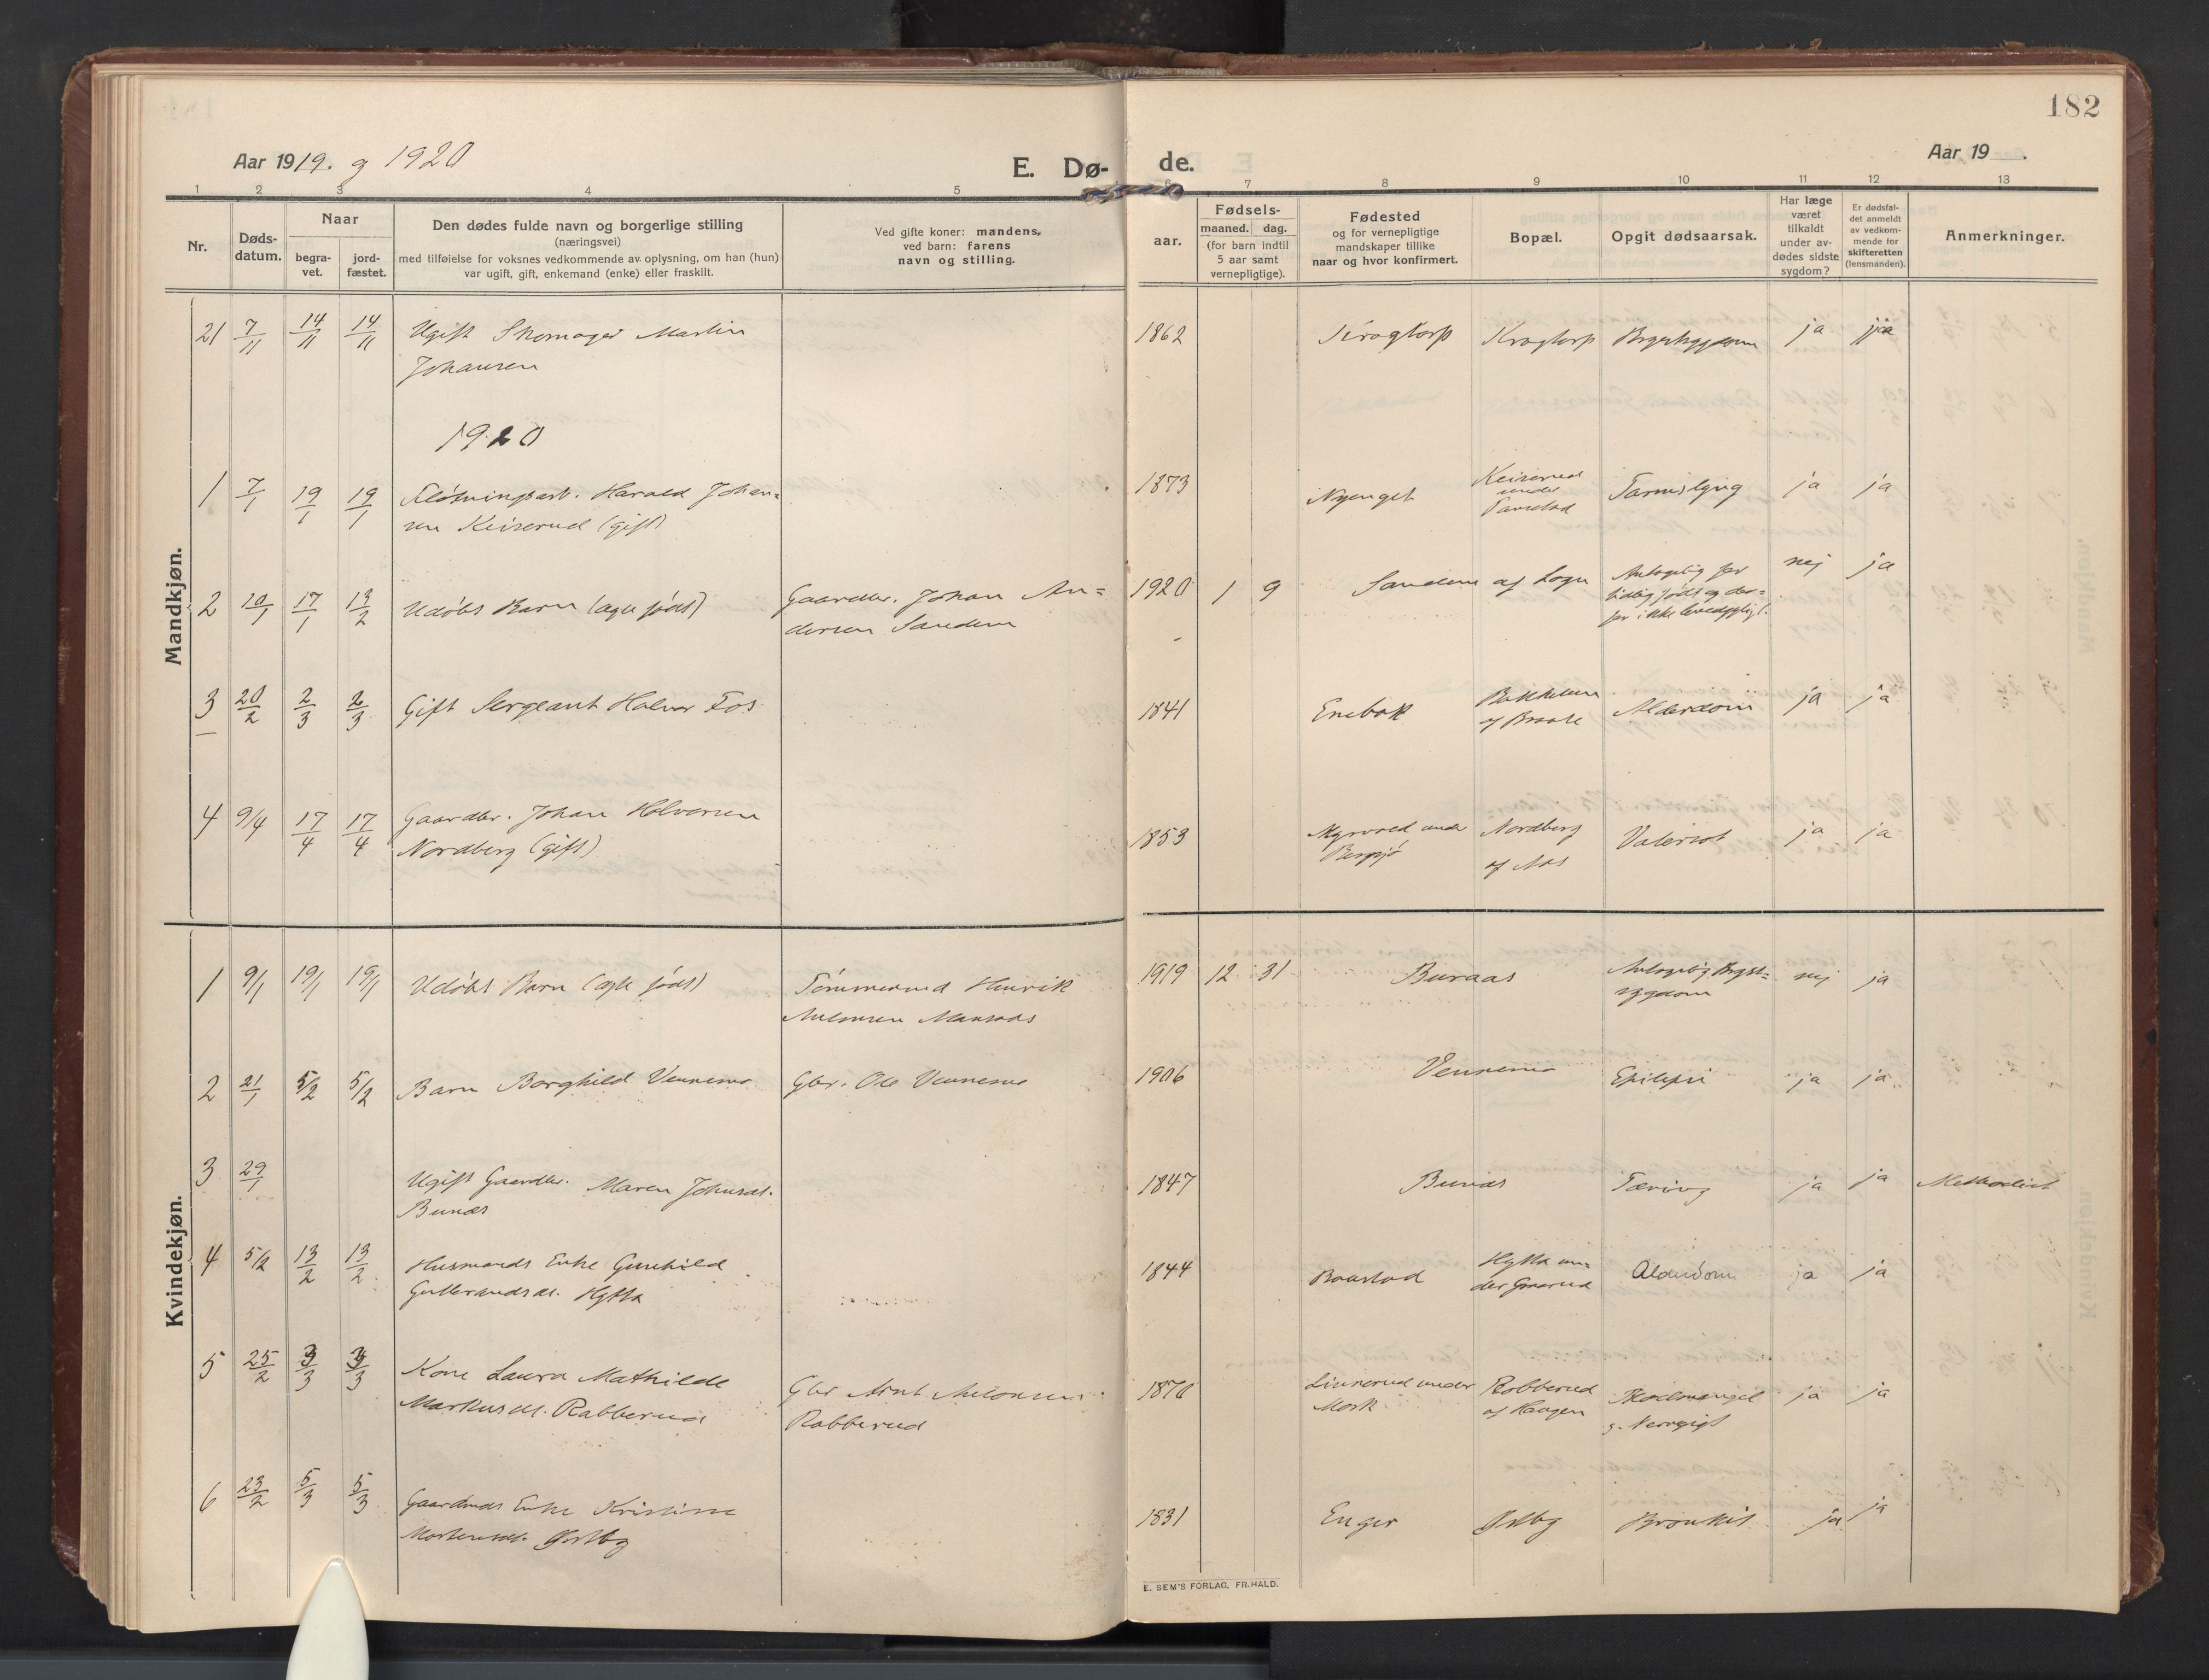 182
Aar 1919. g 1920
E. Dø-
de.
Aar 19 .
1 2 3 4 5 6 7 8 9 10 11 12 13
Nr.
Døds-
datum.
Naar
begra-
vet.
jord-
fæstet.
Den dødes fulde navn og borgerlige stilling
(næringsvei)
med tilføielse for voksnes vedkommende av oplysning, om han (hun)
var ugift, gift, enkemand (enke) eller fraskilt.
Ved gifte koner: mandens,
ved barn: farens
navn og stilling.
aar.
Fødsels-
maaned. dag.
(for barn indtil
5 aar samt
vernepligtige).
Fødested
og for vernepligtige
mandskaper tillike
naar og hvor konfirmert.
Bopæl.
Opgit dødsaarsak.
Har læge
været
tilkaldt
under av-
dødes sidste
sygdom?
Er dødsfal-
det anmeldt
av vedkom-
mende for
skifteretten
(lensmanden).
Anmerkninger.
Mandkjøn.
21 7/11 14/11 14/11 Ugift Skomager Martin
Johansen
1862 Krogtorp Krogtorp Brystsygdom ja ja
1920
1 7/1 19/1 19/1 Fløtningsarb. Harald Johan=
sen Keiserud (gift)
1873 Nyenget Keiserud
under
Taarnsygdom ja ja
2 10/1 17/1 13/2 Udøbt Barn (ægte født)
Gaardbr. Johan An=
dersen Sandem
1920 1 9 Sandem af Logn
Antagelig for
tidlig født og der=
for ikke levedygtigt.
nej ja
3 20/2 2/3 2/3 Gift Sergeant Halvor Fos
1841 Enebak
af Braate
Alderdom ja ja
4 9/4 17/4 17/4 Gaardbr. Johan Halvorsen
Nordberg (gift)
1853 Myrvold under
Nordberg
af Aas
ja ja
Kvindekjøn.
1 9/1 19/1 19/1 Udøbt Barn (ægte født)
Tømmermand Henrik
1919 12 31 Buraas
Antagelig Bryst=
sygdom
nej ja
2 21/1 5/2 5/2 Barn Borghild Vennemo
Gbr. Ole Vennemo
1906 Vennemo Epilepsi ja ja
3 29/1 Ugift Gaardbr. Maren Johnsdt.
Bunæs
1847 Bunæs Tæring ja ja Methodist
4 5/2 13/2 13/2 Husmands Enke Gunhild
Gulbrandsdt. Hytta
1844 Baastad
Hytta un=
der Graarud
Alderdom ja ja
5 25/2 3/3 3/3 Kone Laura Mathilde
Markusdt. Rabberud
Gbr Arnt Antonsen
Robberud
1870 Linnerud under
Mork
Robberud
af Haugen
Blodmangel
g. Nervgigt
ja ja
6 23/2 5/3 5/3 Gaardmds Enke Kristine
Mortensdt. Østby
1831 Enger Østby Bronkit ja ja
E. SEM'S FORLAG, FR.HALD.